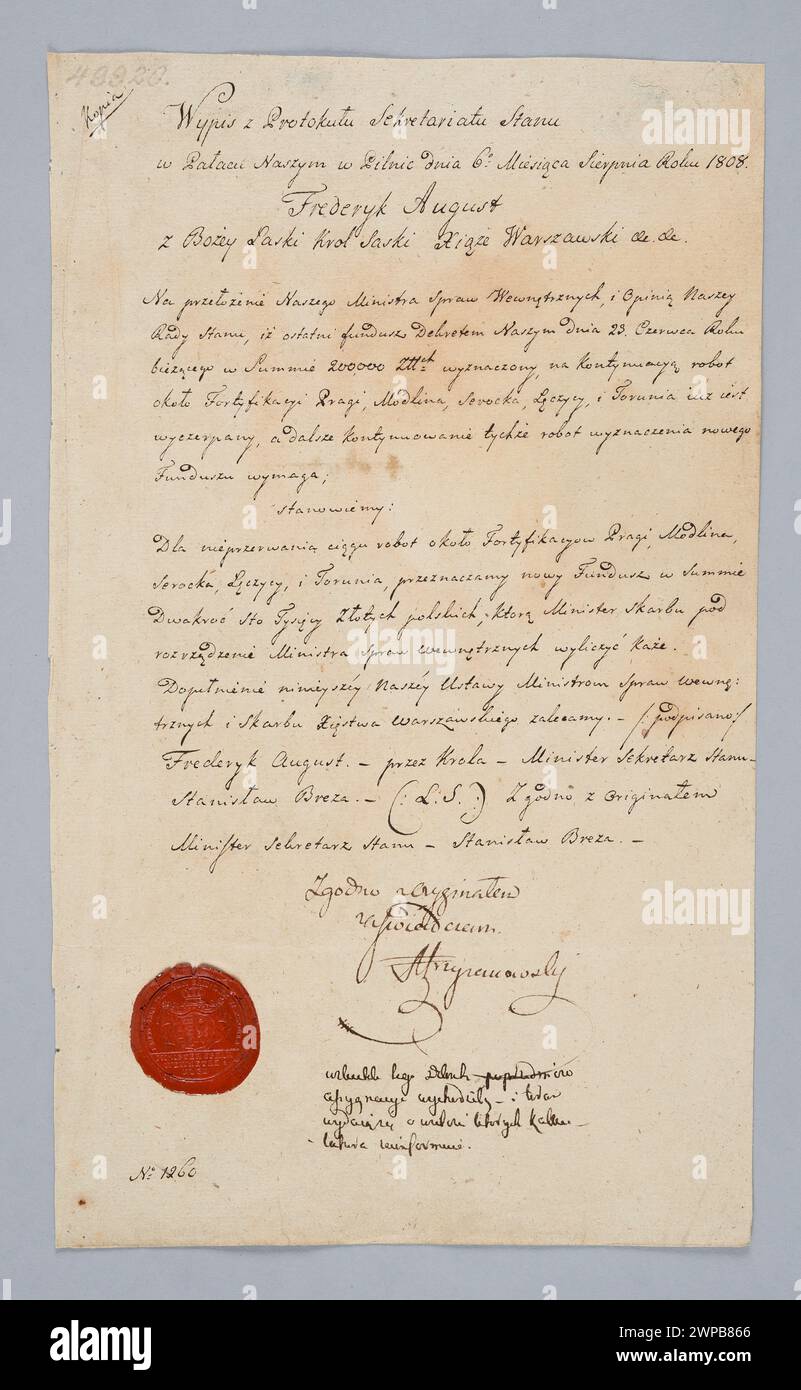 49920.
Kopia
Wypis z Protokułu Sekretariatu Stanu
w Pałacu Naszym w Pilnic dnia 6º Miesiąca Sierpnia Roku 1808.
Fréderyk August
z Bożey Łaski Krol Saski Xiąże Warszawski &c. &c.
Na przełożenie Naszego Ministra Spraw Wewnętrznych, i Opinią Naszey
Rady Stanu, iż ostatni fundusz Dekretem Naszym dnia 23. Czerwca Roku
bieżącego w Summie 200,000 wyznaczony, na Kontynuacyą robot
około Fortyfikacyi Pragi, Modlina, Serocka, Łęczycy, i Torunia iuż iest
wyczerpany, a dalsze Kontynuowanie tychże robot wyznaczenia nowego
Funduszu wymaga;
Stanowiemy:
Dla nieprzerwania ciągu robot około Fortyfikacyow Pragi, Modlina,
Serocka, Łęczycy, i Torunia, przeznaczamy nowy Fundusz w Summie
Dwakroć Sto Tysięcy Złotych polskich, Którą Minister Skarbu pod
rozrządzenie Ministra Spraw Wewnętrznych wyliczyć Każe.
Dopełnienie ninieyszéy Naszéy Ustawy Ministrom Spraw Wewnę:
trznych i Skarbu Xięstwa Warszawskiego zalecamy. – /: podpisano:/
Fréderyk August. – przez Krola – Minister Sekretarz Stanu –
Stanisław Breza. – (: L.S. :) Zgodno z Originałem
Minister Sekretarz Stanu – Stanisław Breza. –
Zgodno z Oryginałem
zaświadczam.
tego
assygnacye wychodziły – i teraz
o których
Nº 1260
alamy
alamy
Image ID: 2WPB866
www.alamy.com